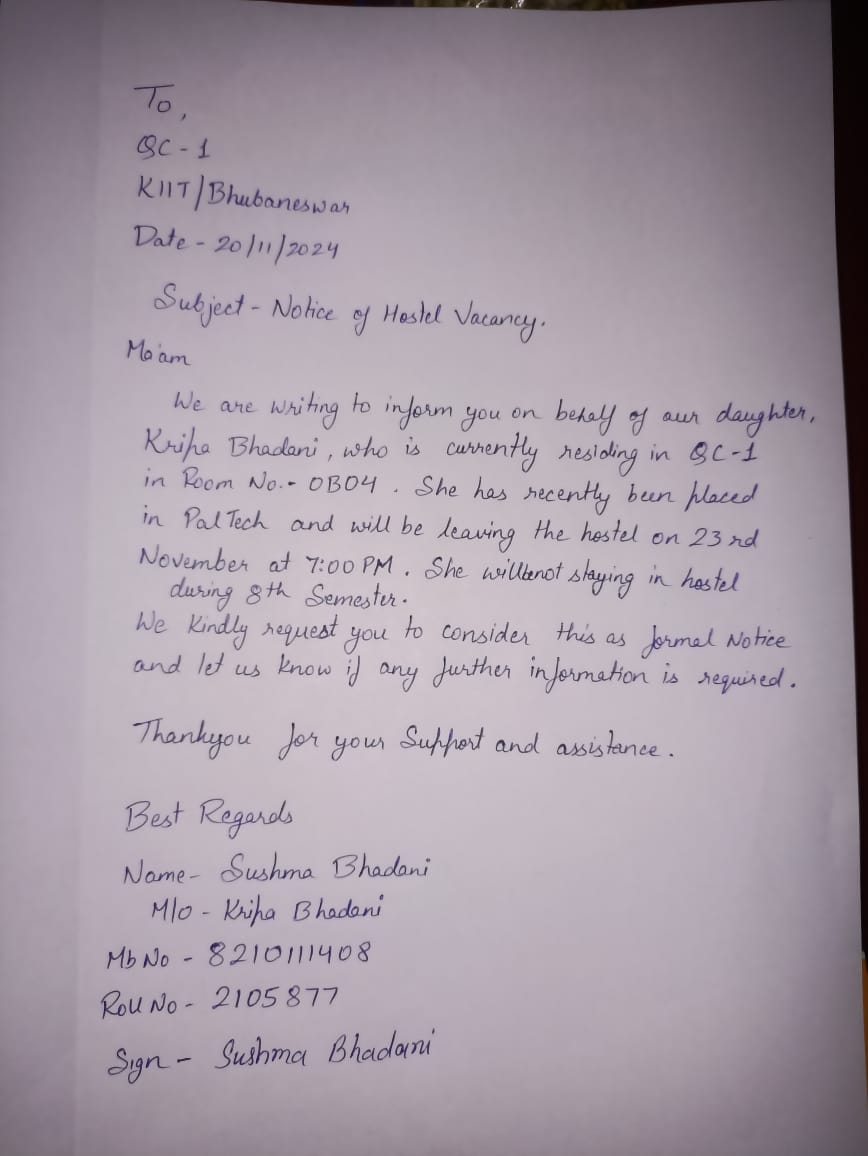 To,
QC-1
KIIT/Bhubaneswar
Date - 20/11/2024
Subject - Notice of Hostel Vacancy.
Ma'am
We are writing to inform you on behalf of our daughter,
Kripa Bhadani, who is currently residing in QC-1
in Room No.- 0B04. She has recently been placed
in PalTech and will be leaving the hostel on 23rd
November at 7:00 PM. She willbenot staying in hostel
during 8th Semester.
We Kindly request you to consider this as formal Notice
and let us know if any further information is required.
Thankyou for your Support and assistance.
Best Regards
Name - Sushma Bhadani
M/o - Kripa Bhadani
Mb No - 8210111408
Roll No - 2105877
Sign - Sushma Bhadani